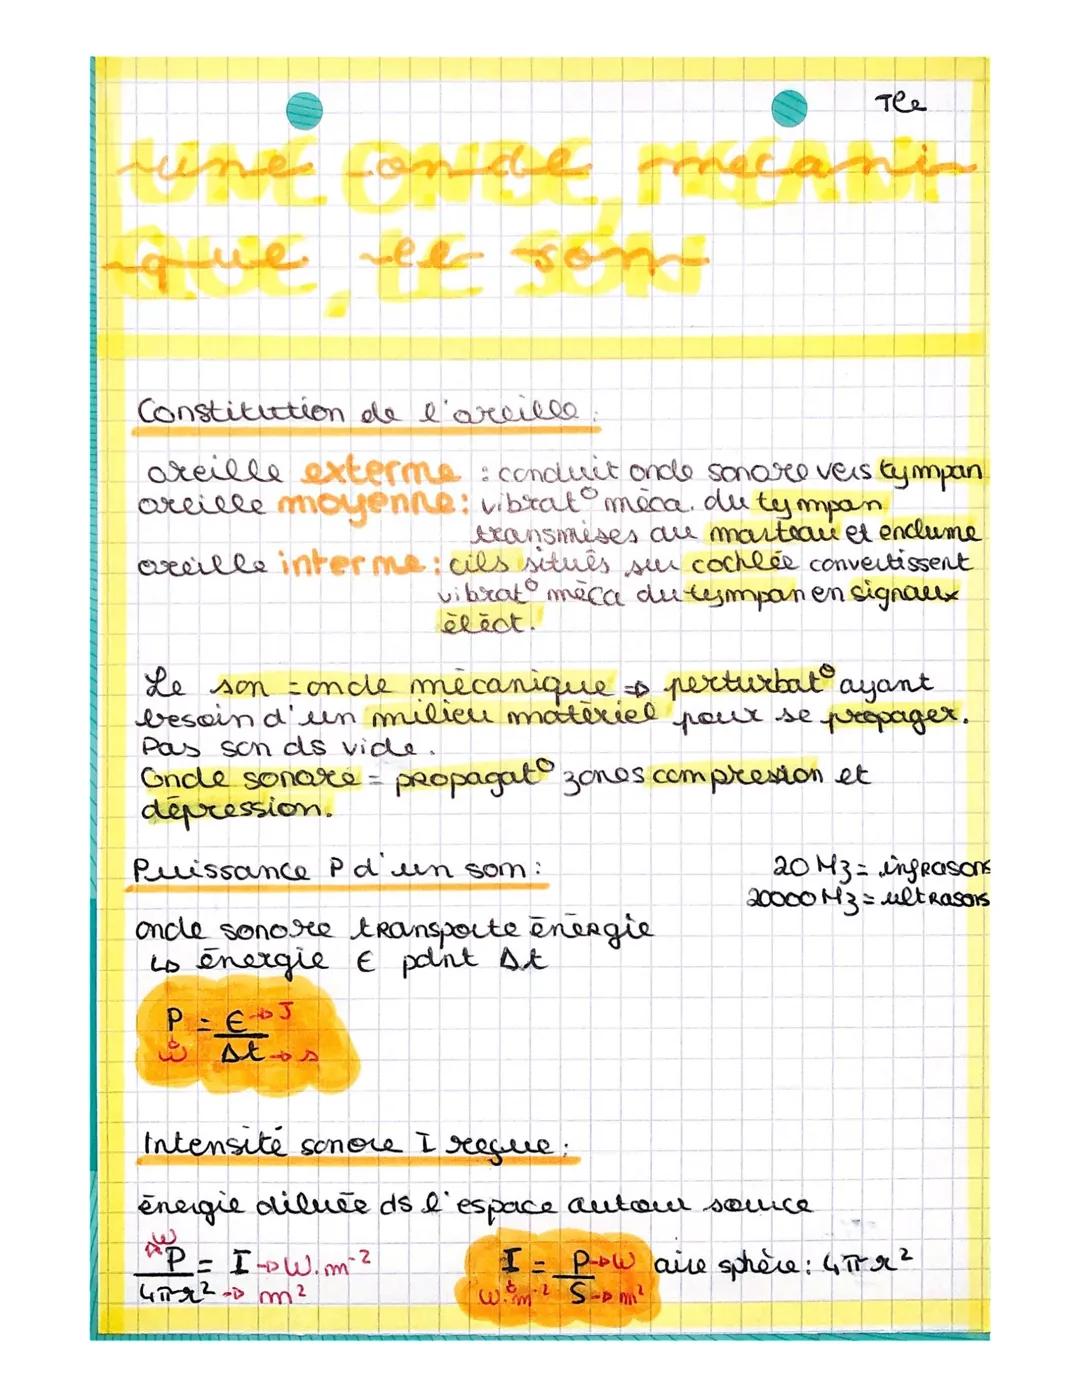 Tle
une onde mecani-
que, le son
Constitution de l'oreille :
oreille externe : conduit onde sonore vers tympan
oreille moyenne : vibrat° méca. du tympan
transmises au marteau et enclume
oreille interne : cils situés sur cochlée convertissent
vibrat° méca du tympan en signaux
élect.
Le son = onde mécanique → perturbat° ayant
besoin d'un milieu matériel pour se propager.
Pas son ds vide.
Onde sonore = propagat° zones compression et
dépression.
Puissance P d'un son :
20 Hz = infrasons
20000 Hz = ultrasons
onde sonore transporte énergie
↳ énergie E pdnt Δt
P = E → J
W Δt → s
Intensité sonore I reçue :
énergie diluée ds l'espace autour source
W
P = I → W.m⁻²
4πr² → m²
I = P → W aire sphère : 4πr²
W.m⁻² S → m²